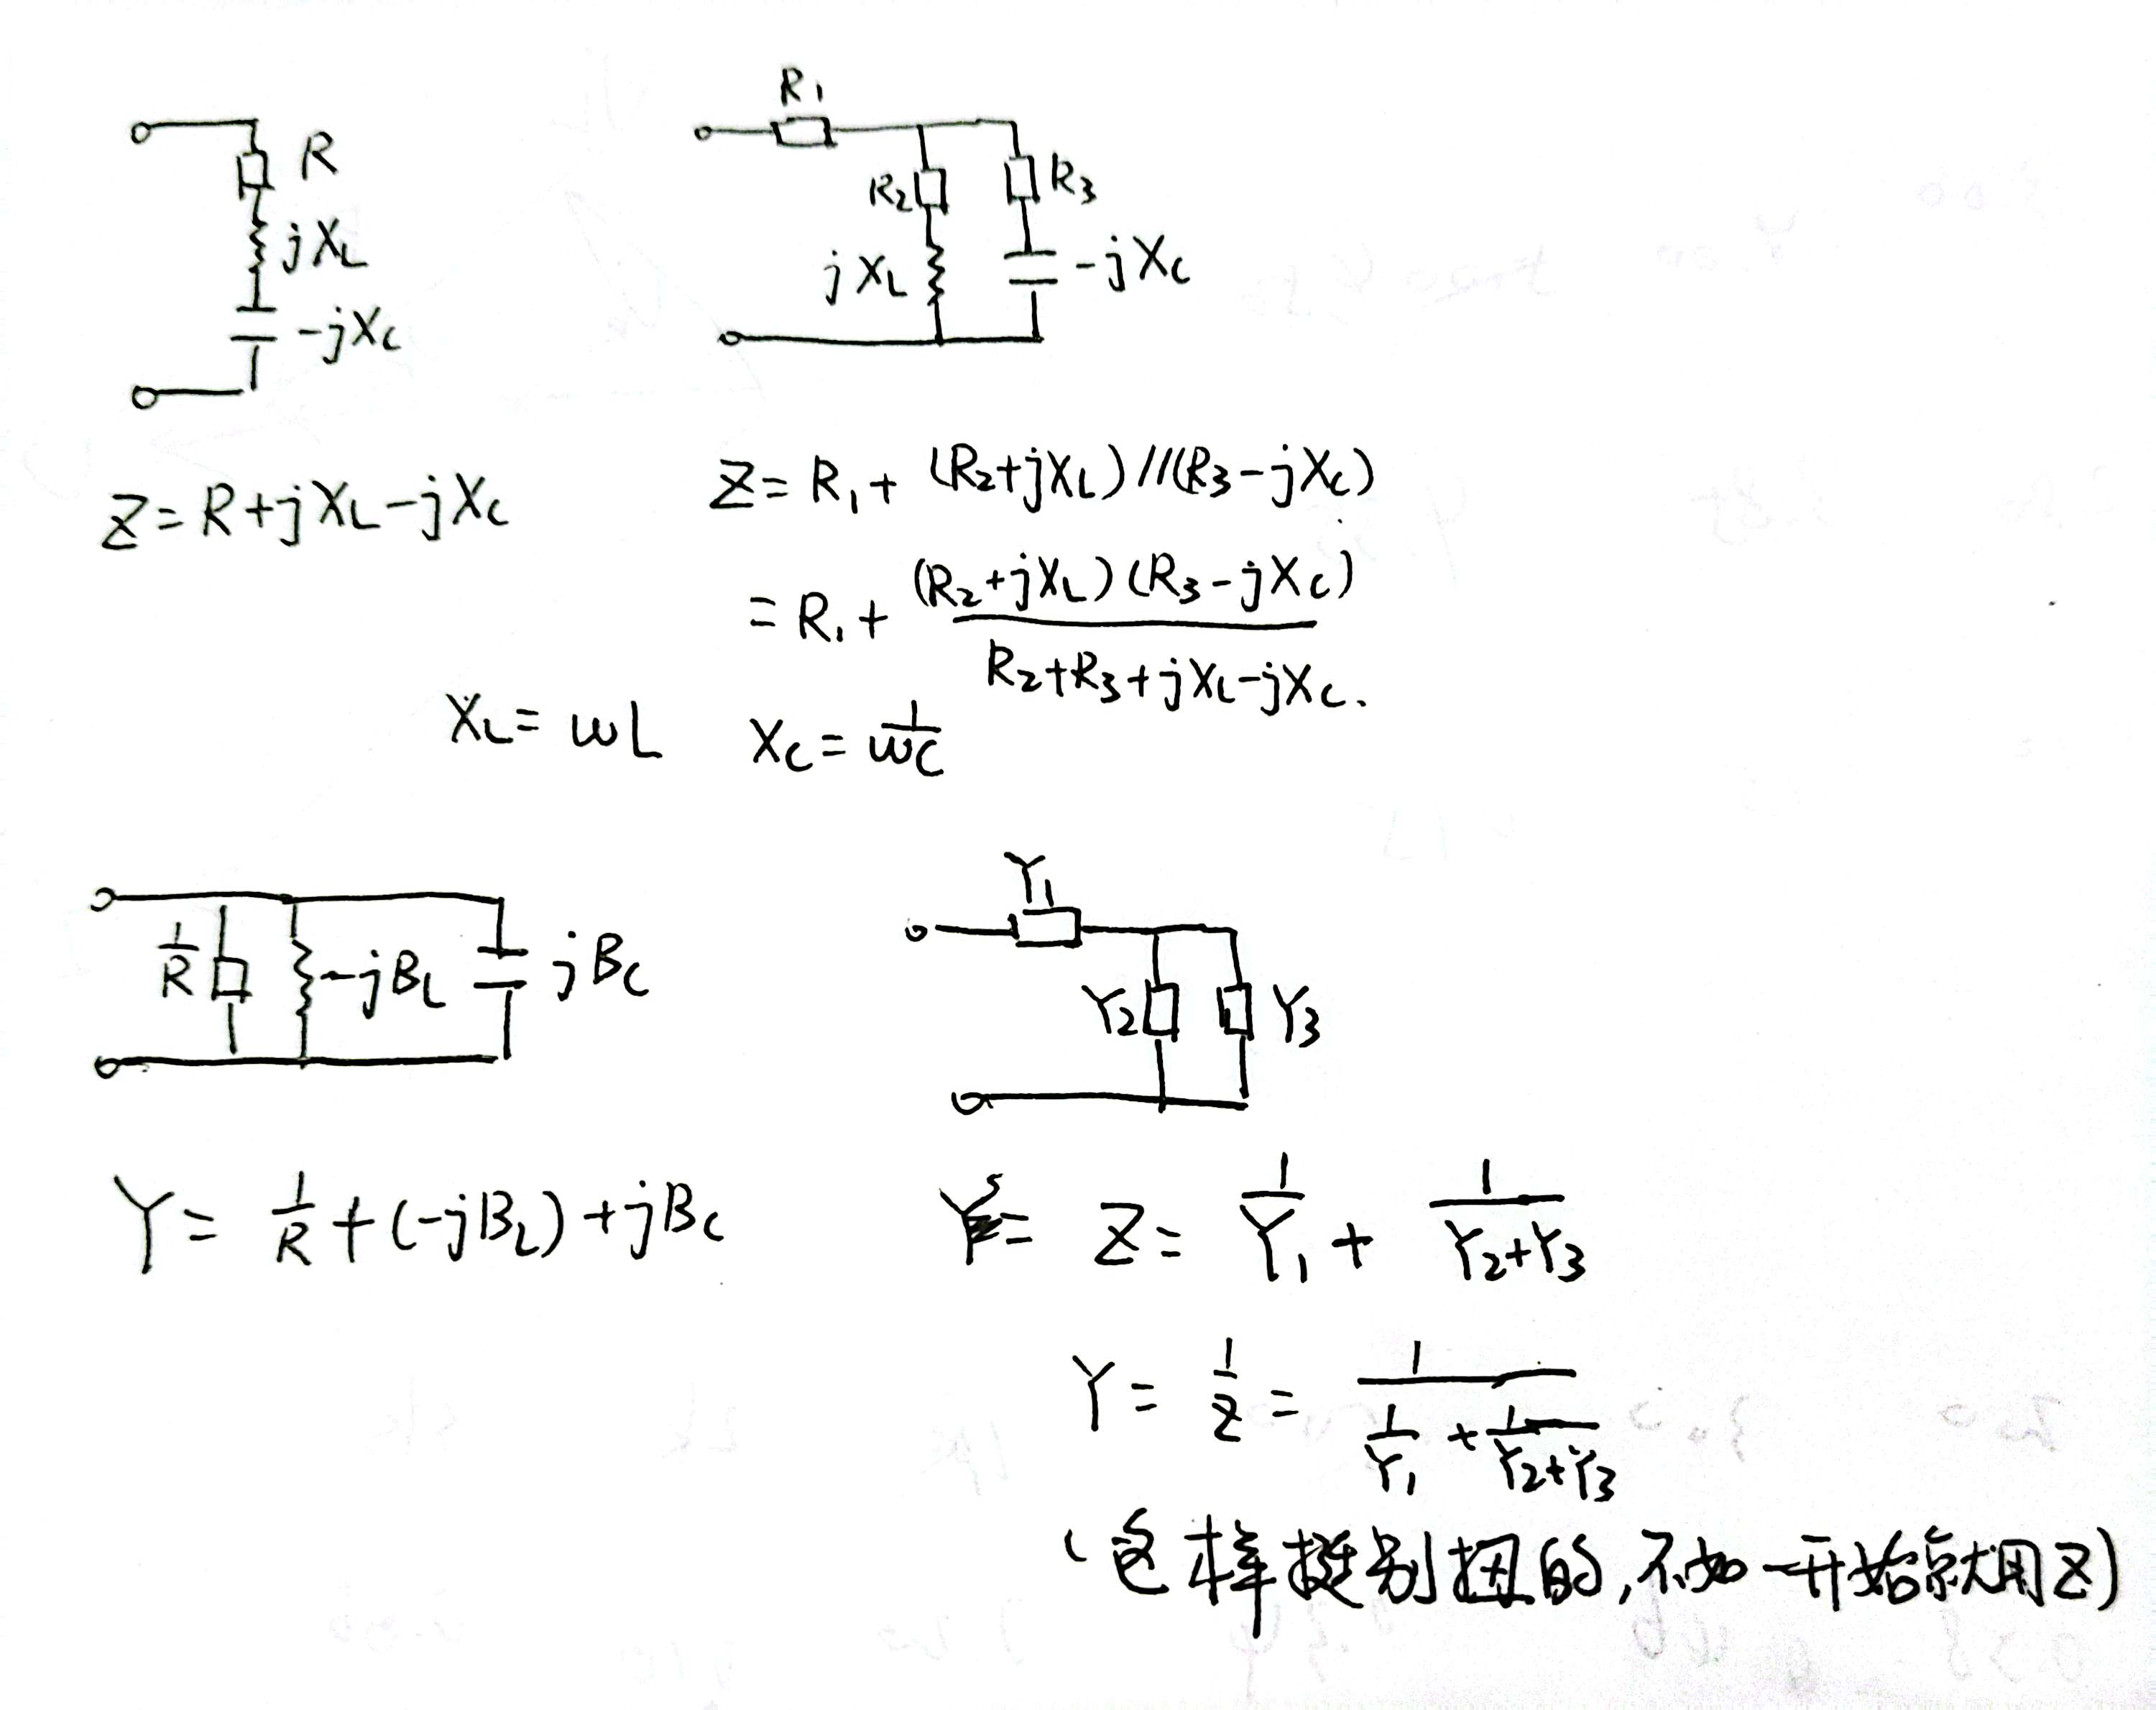 R
jXL
-jXC
R1
R2
R3
jXL
-jXC
Z=R+jXL-jXC
Z=R1+(R2+jXL)//(R3-jXC)
=R1+(R2+jXL)(R3-jXC)
R2+R3+jXL-jXC.
XL=ωL XC=1/ωC
1/R
-jBL
jBC
Y1
Y2
Y3
Y=1/R+(-jBL)+jBC
Z=1/Y1+1/(Y2+Y3)
Y=1/Z=1/(1/Y1+1/(Y2+Y3))
(这样挺别扭的,不如一开始就用Z)